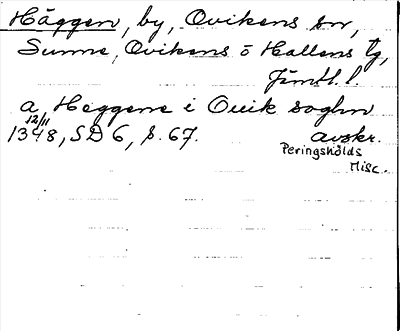 Häggen, by, Ovikens sn,
Sunne, Ovikens o Hallens tg,
Jämtl. l.
a Heggene i Ouik soghn
12/11
1348, SD 6, s. 67. avskr.
Peringskölds
Misc.